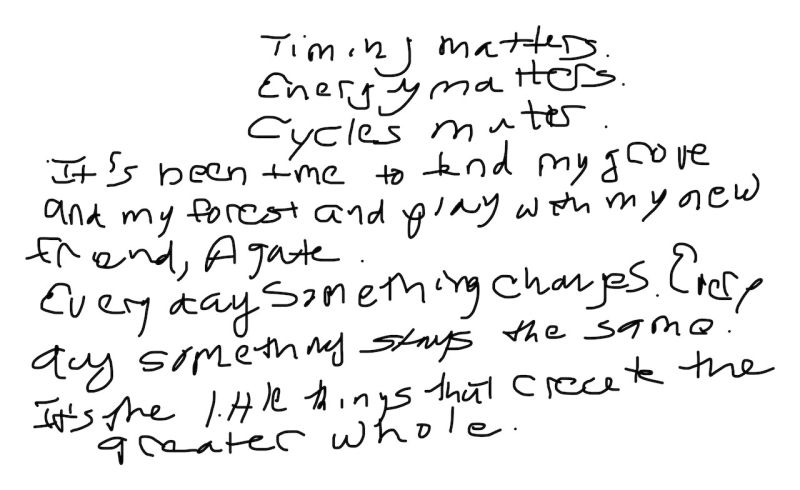 Timing matters.
Energy matters.
Cycles matter.
It's been time to tend my grove
and my forest and play with my new
friend, Agate.
Every day something changes. Every
day something stays the same.
It's the little things that create the
greater whole.